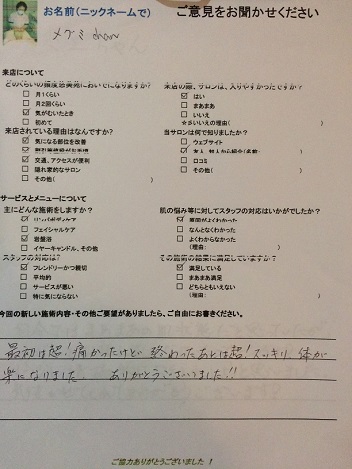 お名前(ニックネームで)
ご意見をお聞かせください
メグミ chan
来店について
どのくらいの頻度悠美苑においでになりますか?
□ 月1くらい
□ 月2回くらい
☑ 気がむいたとき
□ 初めて
来店の際、サロンは、入りやすかったですか?
☑ はい
□ まあまあ
□ いいえ
★さいいえの理由( )
来店されている理由はなんですか?
☑ 気になる部位の改善
☑ 割引等情報がお手頃
☑ 交通、アクセスが便利
□ 隠れ家的なサロン
□ その他( )
当サロンは何で知りましたか?
□ ウェブサイト
☑ 友人、知人から紹介(名前: )
□ 口コミ
□ その他( )
サービスとメニューについて
主にどんな施術をしますか?
☑ リンパボディケア
□ フェイシャルケア
☑ 岩盤浴
□ イヤーキャンドル、その他
肌の悩み等に対してスタッフの対応はいかがでしたか?
☑ 原因がよくわかった
□ なんとなくわかった
□ よくわからなかった
(理由: )
スタッフの対応は?
☑ フレンドリーかつ親切
□ 平均的
□ サービスが悪い
□ 特に気にならない
その施術の結果に満足していますか?
☑ 満足している
□ まあまあ満足
□ どちらともいえない
(理由: )
今回の新しい施術内容・その他ご要望がありましたら、ご自由にお書きください。
最初は超!痛かったけど 終わったあとは超!スッキリ、体が
楽になりました。 ありがとうございました!!
ご協力ありがとうございました !